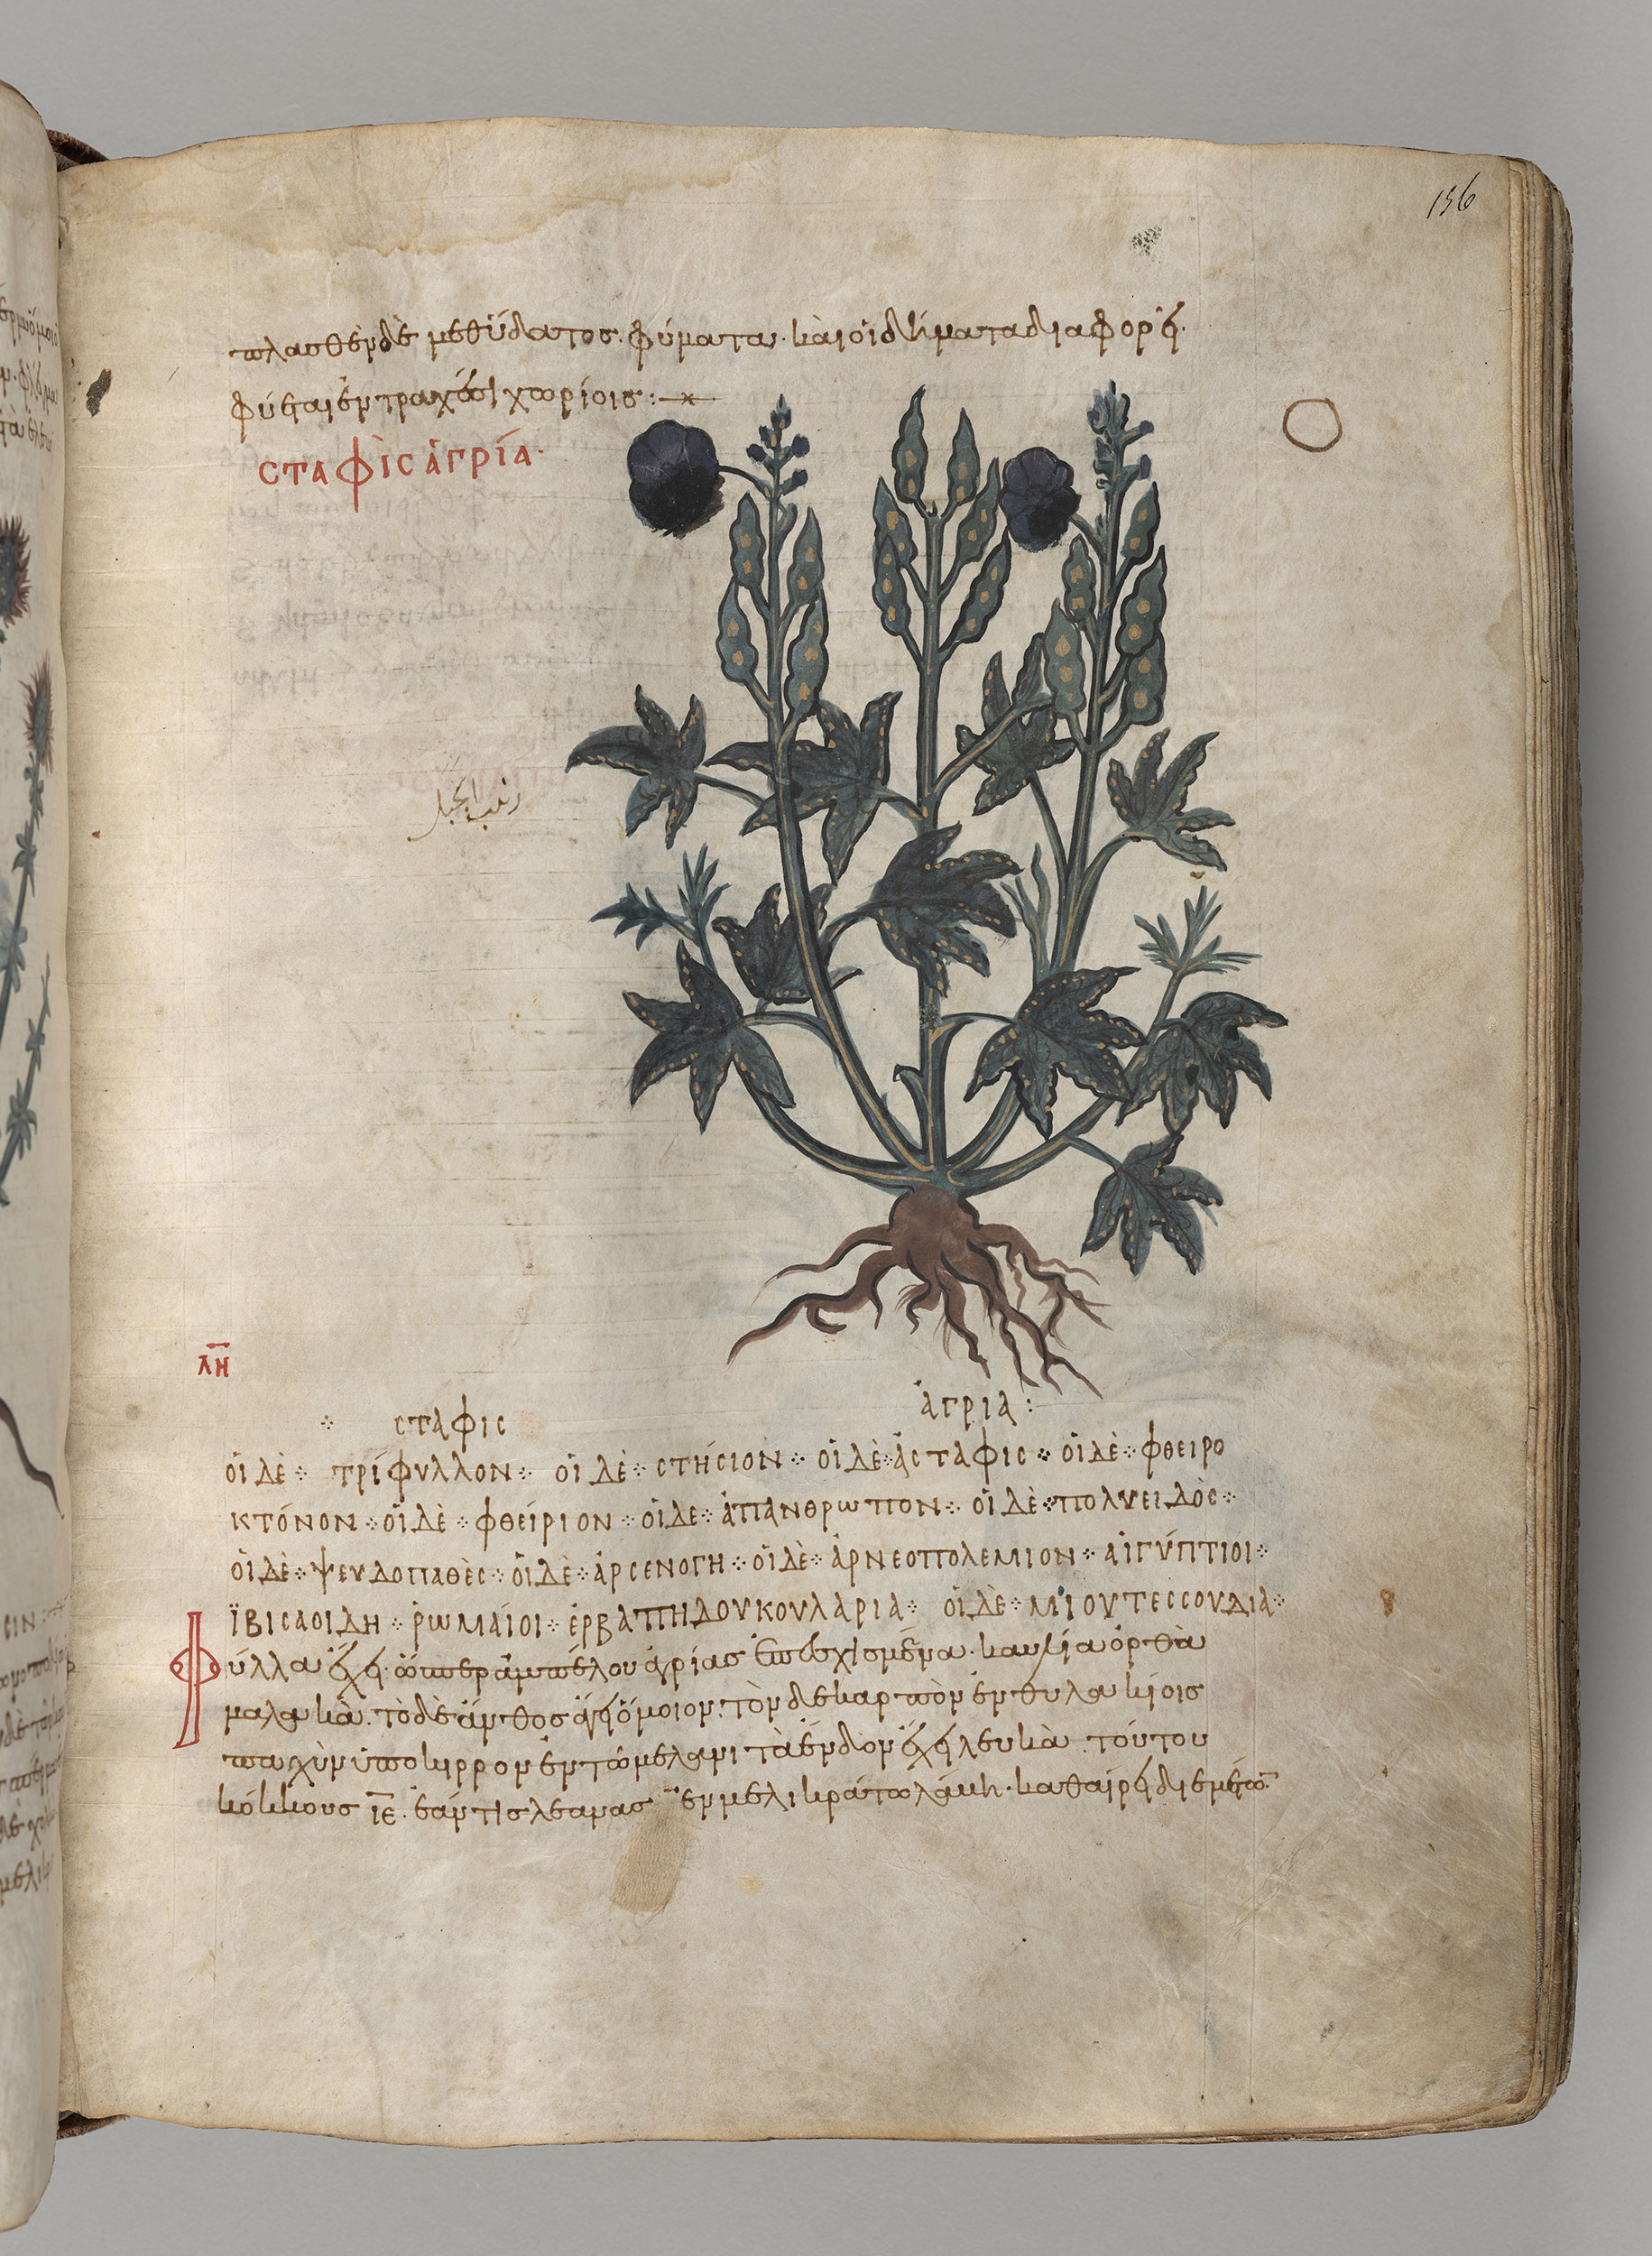 156
πλασθὲν δὲ μεθ ὕδατος. φύματα. καὶ οἰδήματα διαφορεῖ.
φύεται ἐν τραχέσι χωρίοις :
ϹΤΑΦῚϹ ἈΓΡΊΑ·
زبيب الجبل
ΛΗ
ϹΤΑΦΙϹ ἈΓΡΙΑ :
ΟἱΔῈ ΤΡΊΦΥΛΛΟΝ ΟἱΔῈ ϹΤΉϹΙΟΝ ΟἱΔῈ ἈϹΤΑΦΙϹ ΟἱΔῈ ΦΘΕΙΡΟ
ΚΤΌΝΟΝ ΟἱΔῈ ΦΘΕΊΡΙΟΝ ΟἱΔΕ ἈΠΑΝΘΡΩΠΟΝ ΟἱΔῈ ΠΟΛΥΕΙΔῸϹ
ΟἱΔῈ ΨΕΥΔΟΠΑΘῈϹ ΟἱΔῈ ἈΡϹΕΝΟΓΗ ΟἱΔῈ ἈΡΝΕΟΠΟΛΕΜΙΟΝ ΑἸΓΎΠΤΙΟΙ
ΪΒΙϹΑΟΙΔΗ ῬΩΜΑΊΟΙ ἙΡΒΑ ΠΗΔΟΥΚΟΥΛΑΡΙΑ ΟἱΔῈ ΜῚΟΥΤΕϹϹΟΥΔΙΑ
Φύλλα ἔχει ὥσπερ ἀμπέλου ἀγρίας ἐπεσχισμένα. καυλία ὀρθὰ
μαλακὰ. τὸ δὲ ἄνθος ὅμοιον. τὸν δε καρπὸν ἐν θυλακίοις
παχὺν ὑποκιρρον ἐν τῶ μελανι τὰ ἔνδον ἔχει λευκὰ. τούτου
κόκκους ιε. ἐάν τις λεανας ἐν μελικράτω λάβη. καθαίρει δι εμέτων